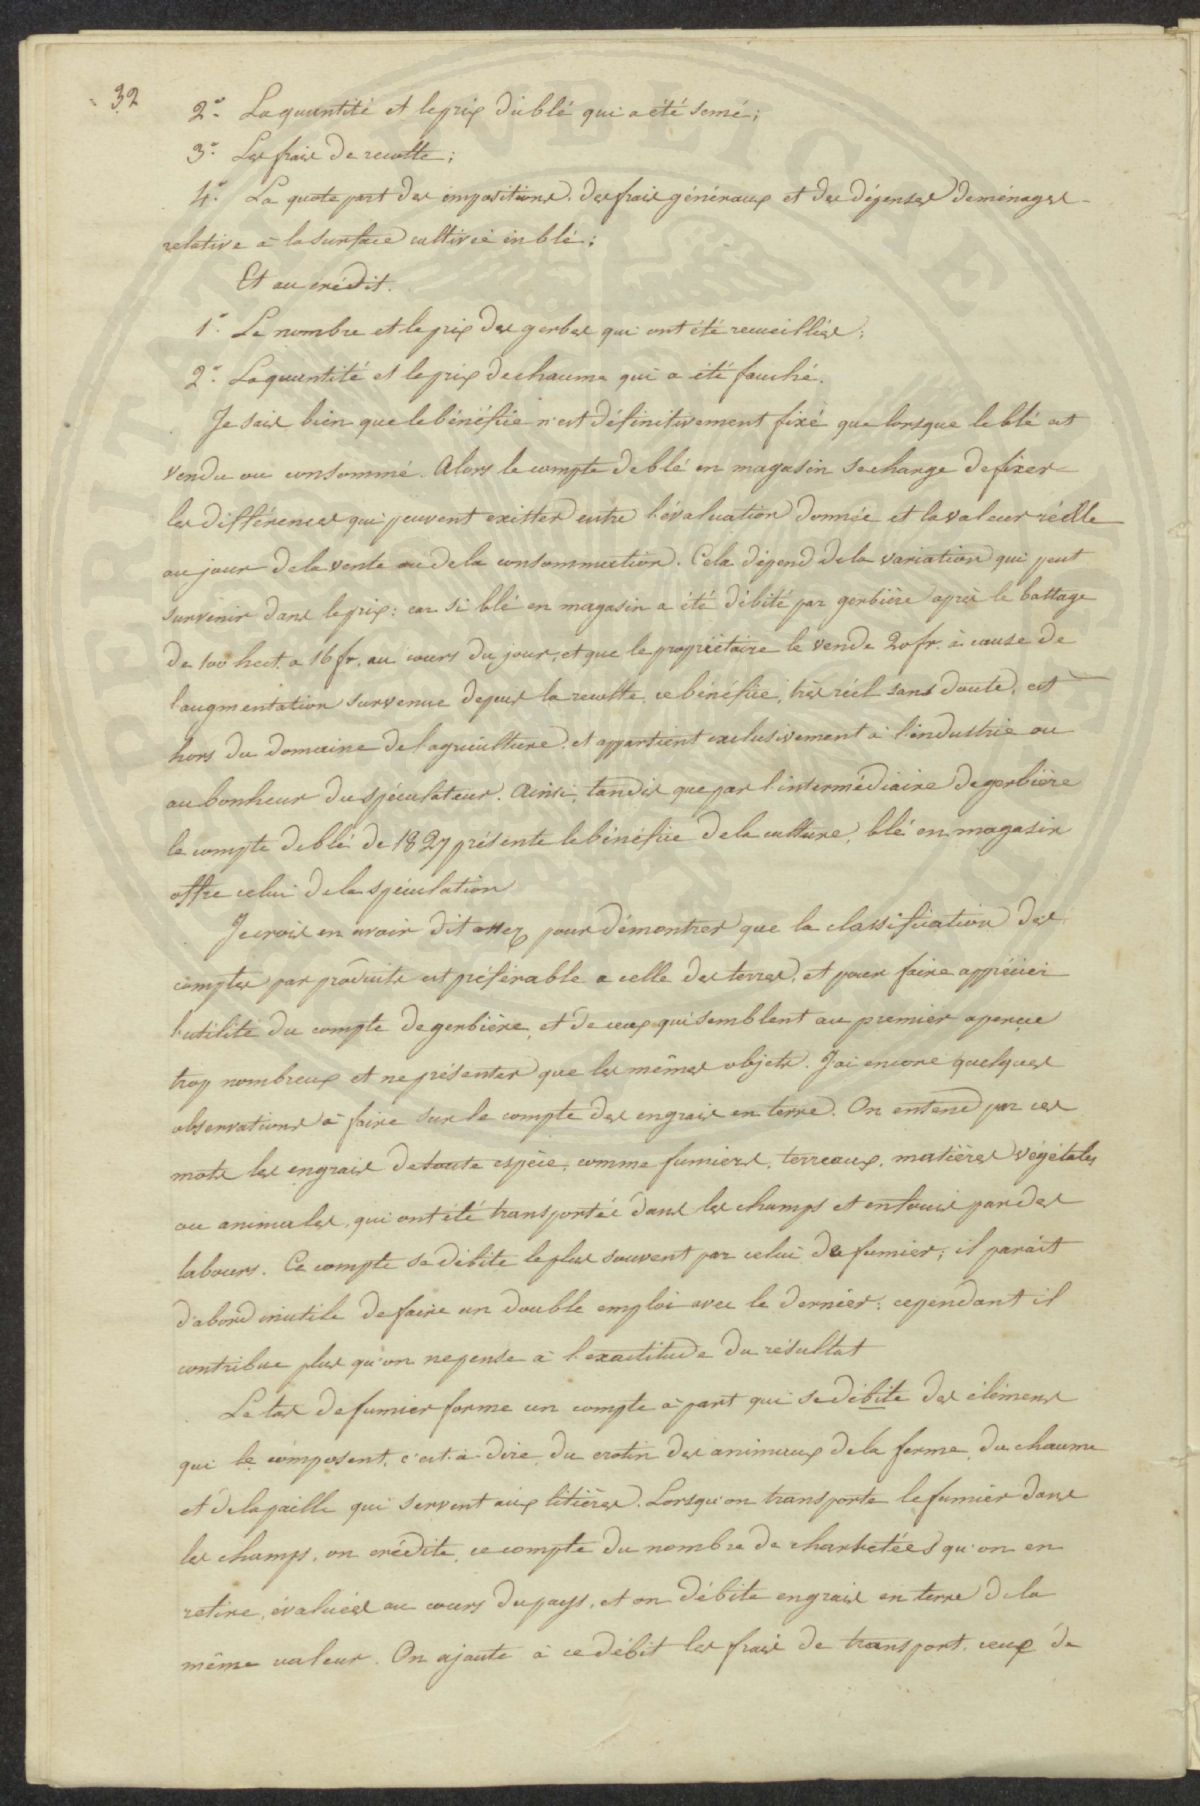 32
2° La quantité et le prix du blé qui a été semé;
3° Les frais de recolte;
4° La quote part des impositions, des frais généraux et des dépenses de ménages
relative à la surface cultivée en blé;
Et au crédit.
1° Le nombre et le prix des gerbes qui ont été recueillies;
2° La quantité et le prix de chaume qui a été fauché.
Je sais bien que le bénéfice n'est définitivement fixé que lorsque le blé est
vendu ou consommé. Alors le compte de blé en magasin se charge de fixer
les différences qui peuvent exitter entre l'évaluation donnée et la valeur réelle
au jour de la vente ou de la consommation. Cela dépend de la variation qui peut
survenir dans le prix: car si blé en magasin a été débité par gerbière après le battage
de 100 hect. a 16 fr. au cours du jour, et que le propriétaire le vende 20 fr. à cause de
l'augmentation survenue depuis la recolte, ce bénéfice, très réel sans doute, est
hors du domaine de l'agriculture, et appartient exclusivement à l'industrie ou
au bonheur du spéculateur. Ainsi, tandis que par l'intermédiaire de gerbière
le compte de blé de 1827 présente le bénéfice de la culture, blé en magasin
offre celui de la spéculation
Je crois en avoir dit assez pour démontrer que la classification des
comptes par produits est préférable a celle des terres, et pour faire apprécier
l'utilité du compte de gerbière, et de ceux qui semblent au premier aperçue
trop nombreux et ne présenter que les mêmes objets. J'ai encore quelques
observations à faire sur le compte des engrais en terre. On entend par ces
mots les engrais de toute espèce, comme fumiers, terreaux, matières végétales
ou animales, qui ont été transportés dans les champs et enfouis par des
labours. Ce compte se débite le plus souvent par celui de fumier; il parait
d'abord inutile de faire un double emploi avec le dernier; cependant il
contribue plus qu'on ne pense à l'exactitude du résultat
Le tas de fumier forme un compte à part qui se débite des élémens
qui le composent, c'est-à-dire, du crotin des animaux de la ferme, du chaume
et de la paille qui servent aux litières. Lorsqu'on transporte le fumier dans
les champs, on crédite ce compte du nombre de charretées qu'on en
retire, évaluées au cours du pays, et on débite engrais en terre de la
même valeur. On ajoute à ce débit les frais de transport, ceux de